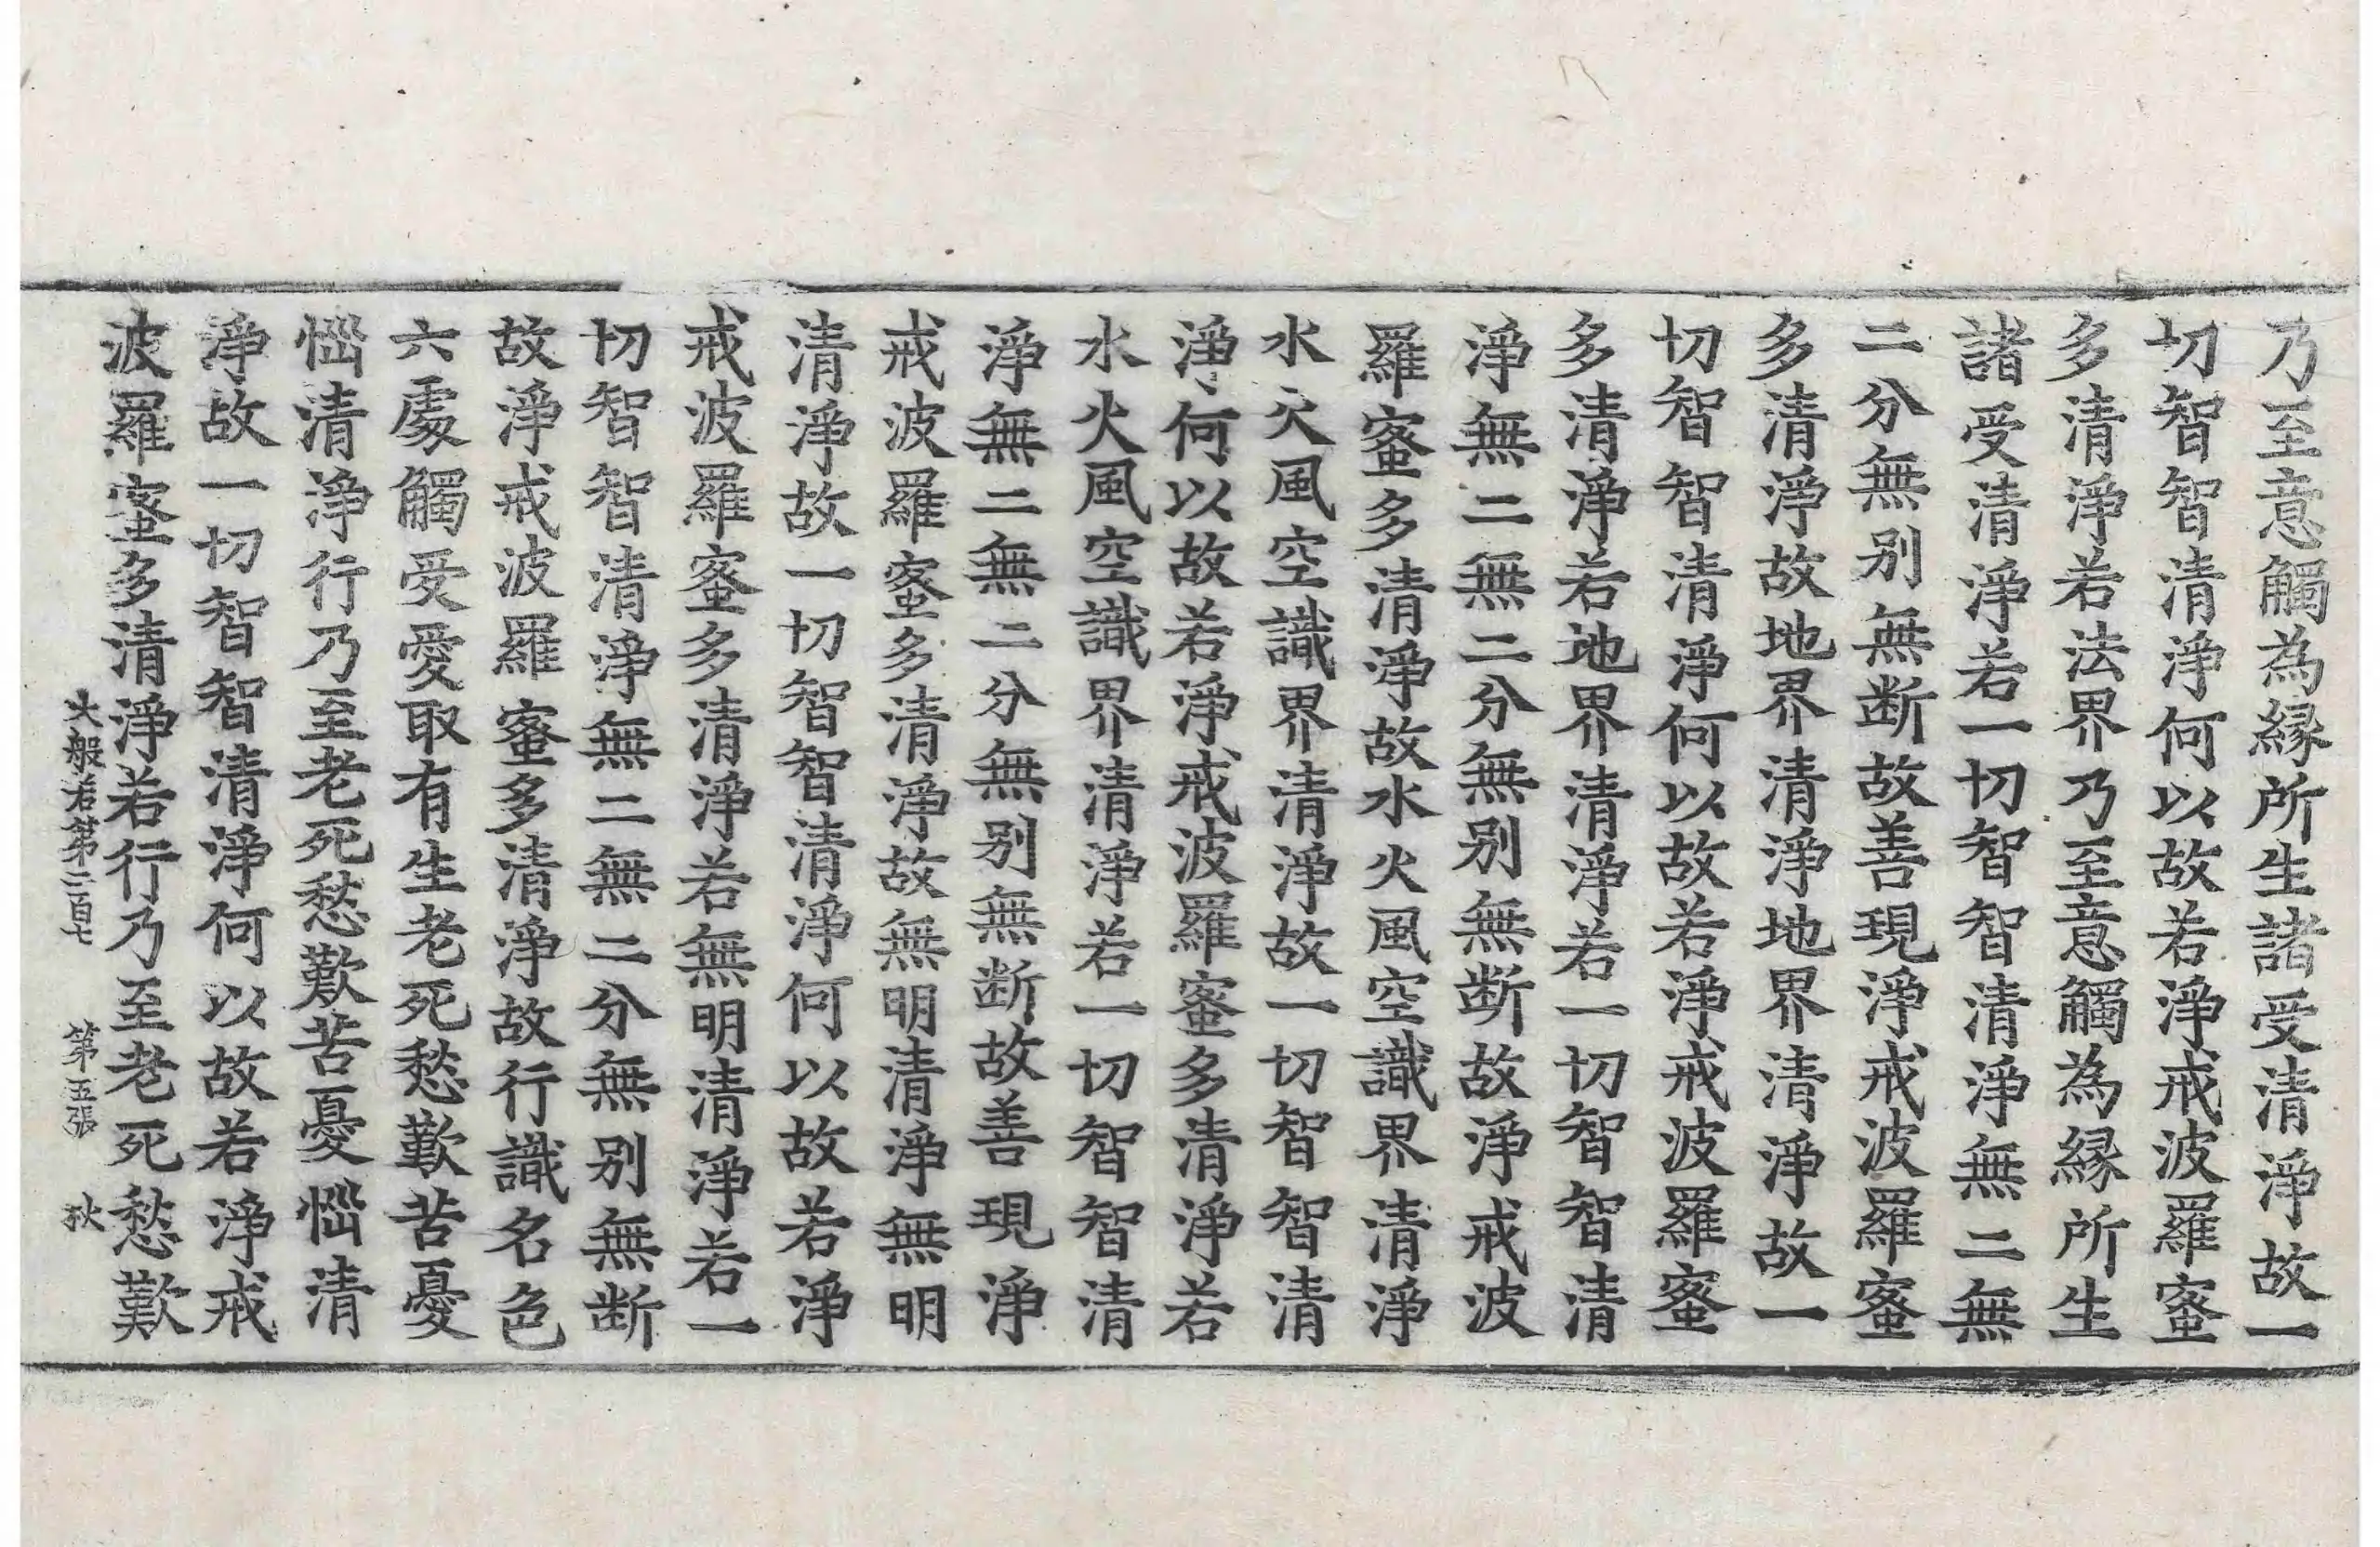 乃至意觸為縁所生諸受清淨故一
切智智清淨何以故若淨戒波羅蜜
多清淨若法界乃至意觸為縁所生
諸受清淨若一切智智清淨無二無
二分無别無断故善現淨戒波羅蜜
多清淨故地界清淨地界清淨故一
切智智清淨何以故若淨戒波羅蜜
多清淨若地界清淨若一切智智清
淨無二無二分無别無断故淨戒波
羅蜜多清淨故水火風空識界清淨
水火風空識界清淨故一切智智清
淨何以故若淨戒波羅蜜多清淨若
水火風空識界清淨若一切智智清
淨無二無二分無别無断故善現淨
戒波羅蜜多清淨故無明清淨無明
清淨故一切智智清淨何以故若淨
戒波羅蜜多清淨若無明清淨若一
切智智清淨無二無二分無别無断
故淨戒波羅蜜多清淨故行識名色
六處觸受愛取有生老死愁歎苦憂
惱清淨行乃至老死愁歎苦憂惱清
淨故一切智智清淨何以故若淨戒
波羅蜜多清淨若行乃至老死愁歎
大般若第二百七 第五張 狄